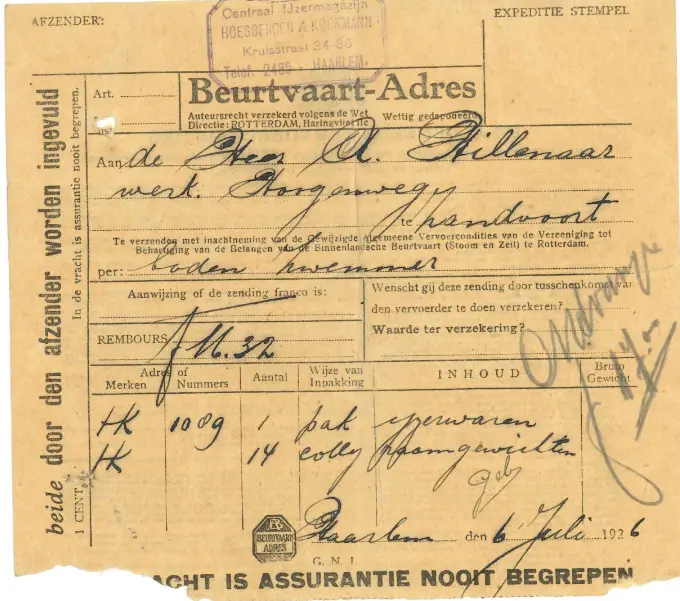 AFZENDER:
Centraal IJzermagazijn
HOESBERGEN & KOCKMANN
Kruisstraat 34-36
Telef. 2485 - HAARLEM.
EXPEDITIE STEMPEL
beide door den afzender worden ingevuld
In de vracht is assurantie nooit begrepen.
1 CENT.
Art.
Beurtvaart-Adres
Auteursrecht verzekerd volgens de Wet Wettig gedeponeerd
Directie: ROTTERDAM, Haringvliet
Aan de Heer A. Hillenaar
werk. Hoogenweg
te Zandvoort
Te verzenden met inachtneming van de Gewijzigde Algemeene Vervoercondities van de Vereeniging tot
Behartiging van de Belangen van de Binnenlandsche Beurtvaart (Stoom en Zeil) te Rotterdam.
per: boden Zwemmer
Aanwijzing of de zending franco is:
Wenscht gij deze zending door tusschenkomst van
den vervoerder te doen verzekeren?
REMBOURS
Waarde ter verzekering?
Adres of
Merken Nummers Aantal Wijze van Inpakking INHOUD Bruto Gewicht
HK 1089 1 pak ijzerwaren
HK 14 colly raamgewichten
BEURTVAART
ADRES
Haarlem den 6 Juli 1926
G. N. I.
ACHT IS ASSURANTIE NOOIT BEGREPEN